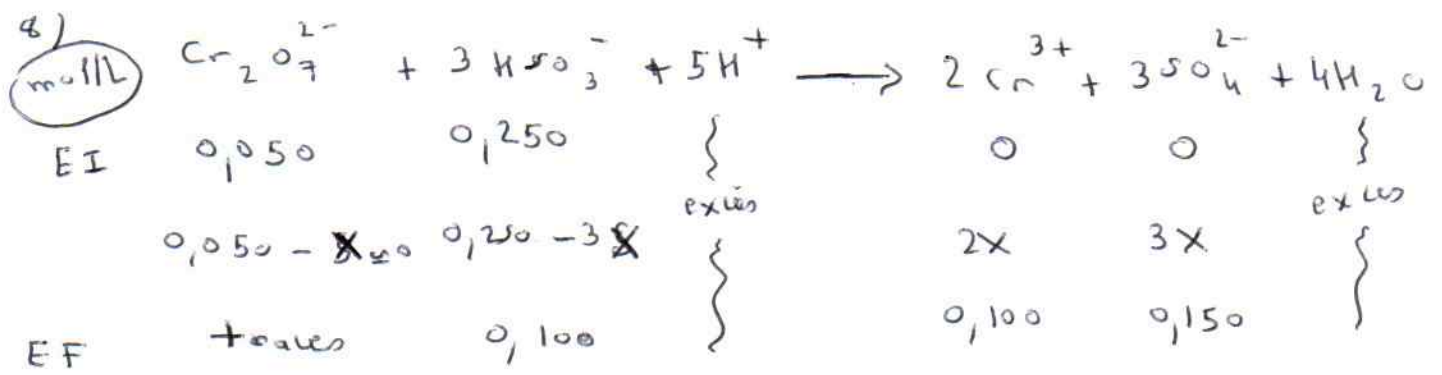 8)
mol/L Cr₂O₇²⁻ + 3 HSO₃⁻ + 5H⁺ ⟶ 2 Cr³⁺ + 3SO₄²⁻ + 4H₂O
EI 0,050 0,250 0 0
excès excès
0,050 - X ≃0 0,250 - 3X 2X 3X
EF traces 0,100 0,100 0,150